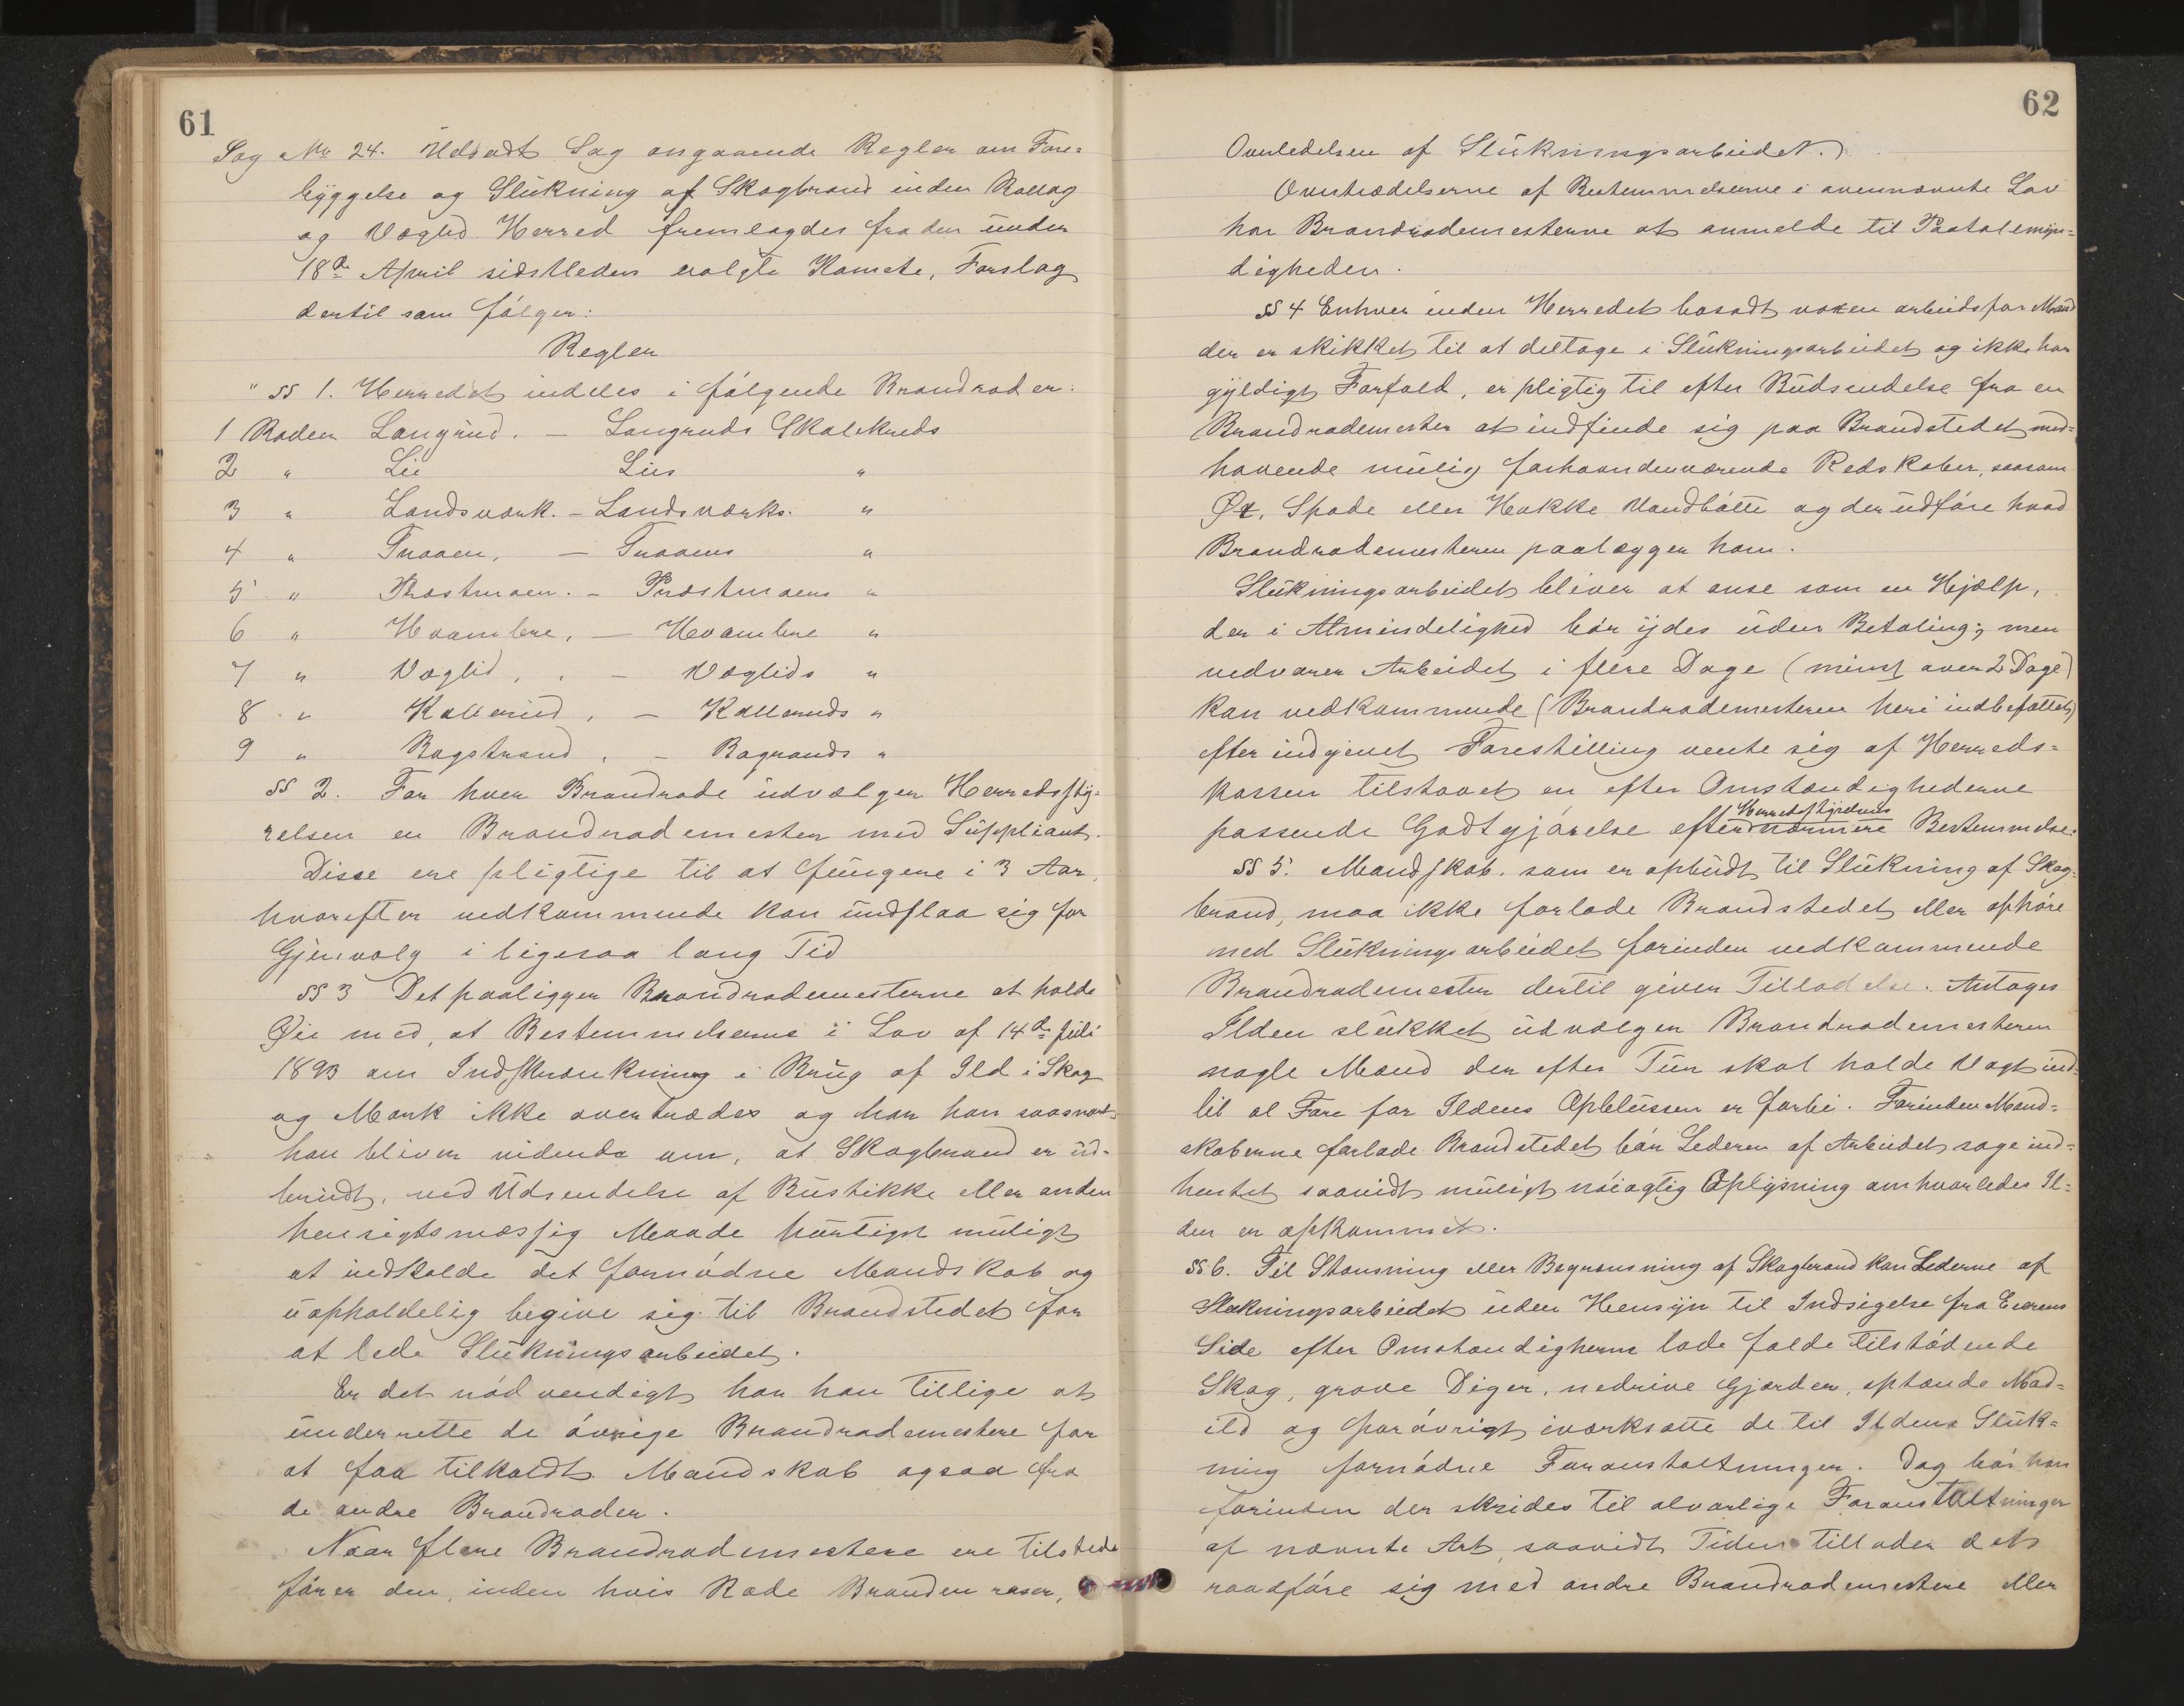 61
Sag No 24. Udsadt Sag angaaende Regler om Fore=
byggelse og Slukning af Skogbrand inden Rollag
og Veglid Herred fremlagdes fra den under
18de April sidstleden valgte Komite, Forslag
dertil som følger:
Regler
" §§ 1. Herredet inddeles i følgende Brandroder:
1 Roden Langrud. — Langruds Skolekreds
2 " Lii Liis "
3 " Landsverk. - Landsverks. "
4 " Traaen, — Traaens "
5 " Præstmoen. - Præstmoens "
6 " Hvambre, — Hvambre "
7 " Veglid, . - Veglids "
8 " Kallerud, — Kalleruds "
9 " Bogstrand, - Bogrands "
§§ 2. For hver Brandrode udvælger Herredssty=
relsen en Brandrodemester med Suppliant.
Disse ere pligtige til at fungere i 3 Aar,
hvorefter vedkommende kan undslaa sig for
Gjenvalg i ligesaa lang Tid
§§ 3 Det paaligger Brandrodemesterne at holde
Øie med, at Bestemmelserne i Lov af 14de Juli
1893 om Indskrænkning i Brug af Ild i Skog
og Mark ikke overtrædes og har han saasnart
han bliver vidende om, at Skogbrand er ud=
brudt, ved Udsendelse af Budstikke eller anden
hensigtsmæssig Maade hurtigst muligt
at indkalde det fornødne Mandskab og
uopholdelig begive sig til Brandstedet for
at lede Slukningsarbeidet.
Er det nødvendigt har han tillige at
underrette de øvrige Brandrodemestere for
at faa tilkaldt Mandskab ogsaa fra
de andre Brandroder.
Naar flere Brandrodemestere ere tilstede
fører den, inden hvis Rode Branden raser,
62
Overledelsen af Slukningsarbeidet.)
Overtrædelserne af Bestemmelserne i ovennævnte Lov
har Brandrodemesterne at anmelde til Paatalemyn=
digheden.
§§ 4 Enhver inden Herredet bosadt voxen arbeidsfør Mand
der er skikket til at deltage i Slukningsarbeidet og ikke har
gyldigt Forfald, er pligtig til efter Budsendelse fra en
Brandrodemester at indfinde sig paa Brandstedet med=
havende mulig forhaandenværende Redskaber, saasom
Øx, Spade eller Hakke Vandbøtte og der udføre hvad
Brandrodemesteren paalægger ham.
Slukningsarbeidet bliver at anse som en Hjælp,
der i Almindelighed bør ydes uden Betaling; men
vedvarer Arbeidet i flere Dage (minst over 2 Dage)
kan vedkommende (Brandrodemesteren heri indbefattet)
efter indgivet Forestilling vente sig af Herreds=
kassen tilstaaet en efter Omstændighederne
Herredsstyrelsens
passende Godtgjørelse efter nærmere Bestemmelse.
§§ 5. Mandskab. som er opbudt til Slukning af Skog=
brand, maa ikke forlade Brandstedet eller ophøre
med Slukningsarbeidet forinden vedkommende
Brandrodemester dertil giver Tilladelse. Antages
Ilden slukket udvælger Brandrodemesteren
nogle Mænd der efter Tur skal holde Vagt ind=
til al Fare for Ildens Opblussen er forbi. Forinden Mand=
skaberne forlade Brandstedet bør Lederen af Arbeidet søge ind=
hentet saavidt muligt nøiagtig Oplysning om hvorledes Il=
den er opkommet.
§§ 6. Til Standsning eller Begrænsning af Skogbrand kan Lederne af
Slukningsarbeidet uden Hensyn til Indsigelse fra Eierens
Side efter Omstændigherne lade fælde tilstødende
Skog, grave Diger, nedrive Gjærder, optænde Mod=
ild og forøvrigt iværksætte de til Ildens Sluk=
ning fornødne Foranstaltninger. Dog bør han
forinden der skrides til alvorlige Foranstaltninger
af nævnte Art, saavidt Tiden tillader det
raadføre sig med andre Brandrodemestere eller